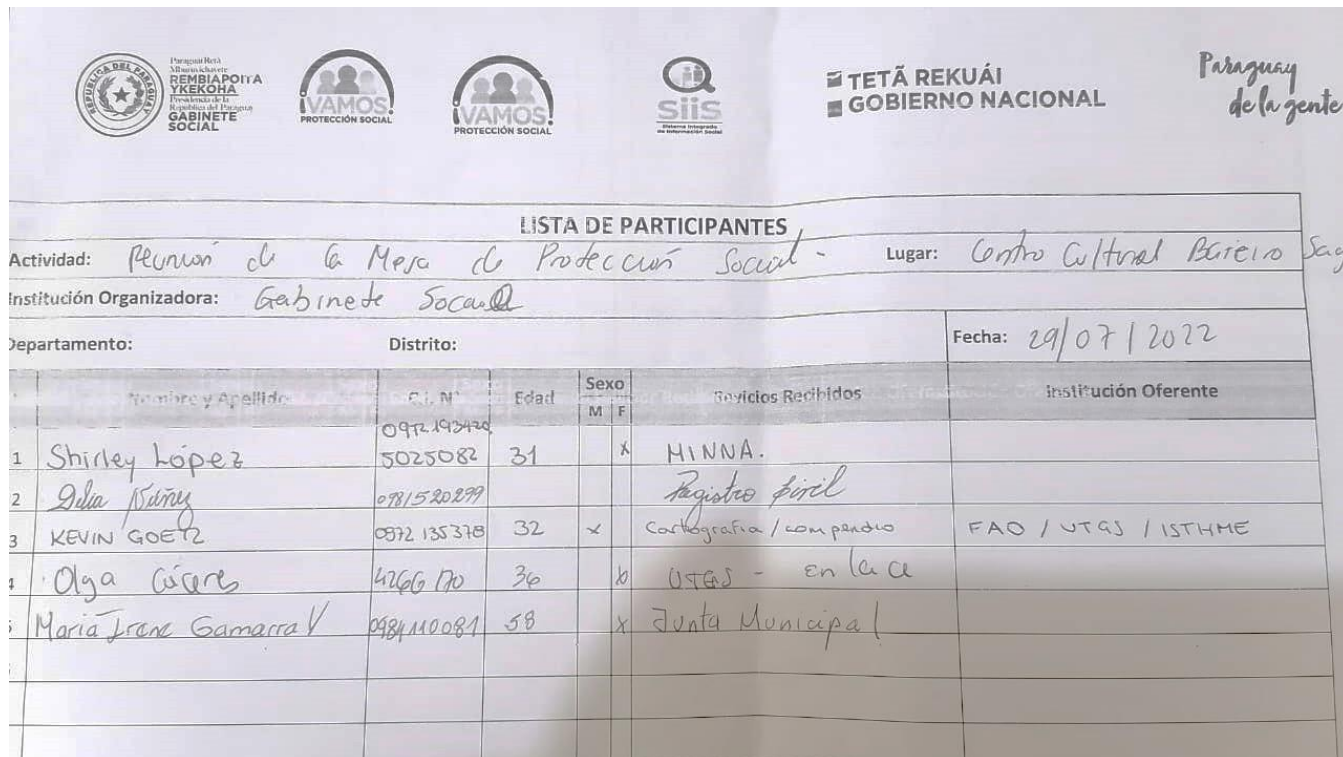 REPUBLICA DEL PARAGUAY
Paraguái Retã
Mburuvichavete
REMBIAPOITA
YKEKOHA
Presidencia de la
República del Paraguay
GABINETE
SOCIAL
¡VAMOS!
PROTECCIÓN SOCIAL
¡VAMOS!
PROTECCIÓN SOCIAL
SIIS
Sistema Integrado
de Información Social
TETÃ REKUÁI
GOBIERNO NACIONAL
Paraguay
de la gente
LISTA DE PARTICIPANTES
Actividad: Reunión de la Mesa de Protección Social - Lugar: Centro Cultural Bareiro
Institución Organizadora: Gabinete Social
Departamento: Distrito: Fecha: 29/07/2022
Nombre y Apellido C.I. N° Edad Sexo M F Servicios Recibidos Institución Oferente
1 Shirley López 5025082 31 x MINNA.
2 Delia Núñez 0981520299 Registro Civil
3 KEVIN GOETZ 0972 135378 32 x Cartografia / compendio FAO / UTGS / ISTHME
4 Olga Cáceres 36 UTGS - enlace
5 Maria Irene Gamarra V 0984110081 58 x Junta Municipal